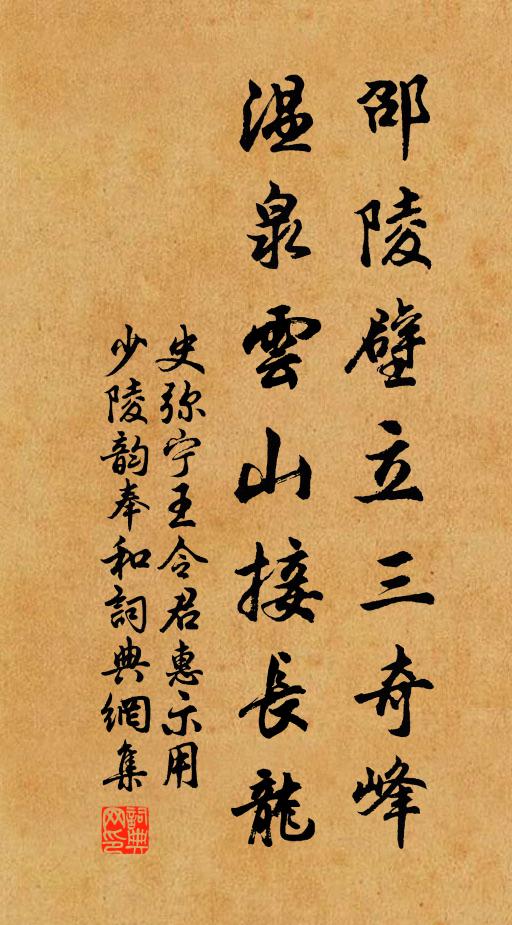 邵陵壁立三奇峰
温泉雲山接長龍
史弥宁王令君惠示用
少陵韵奉和詞典網集
詞典网印